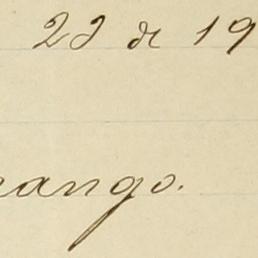 22 de 19
rango.